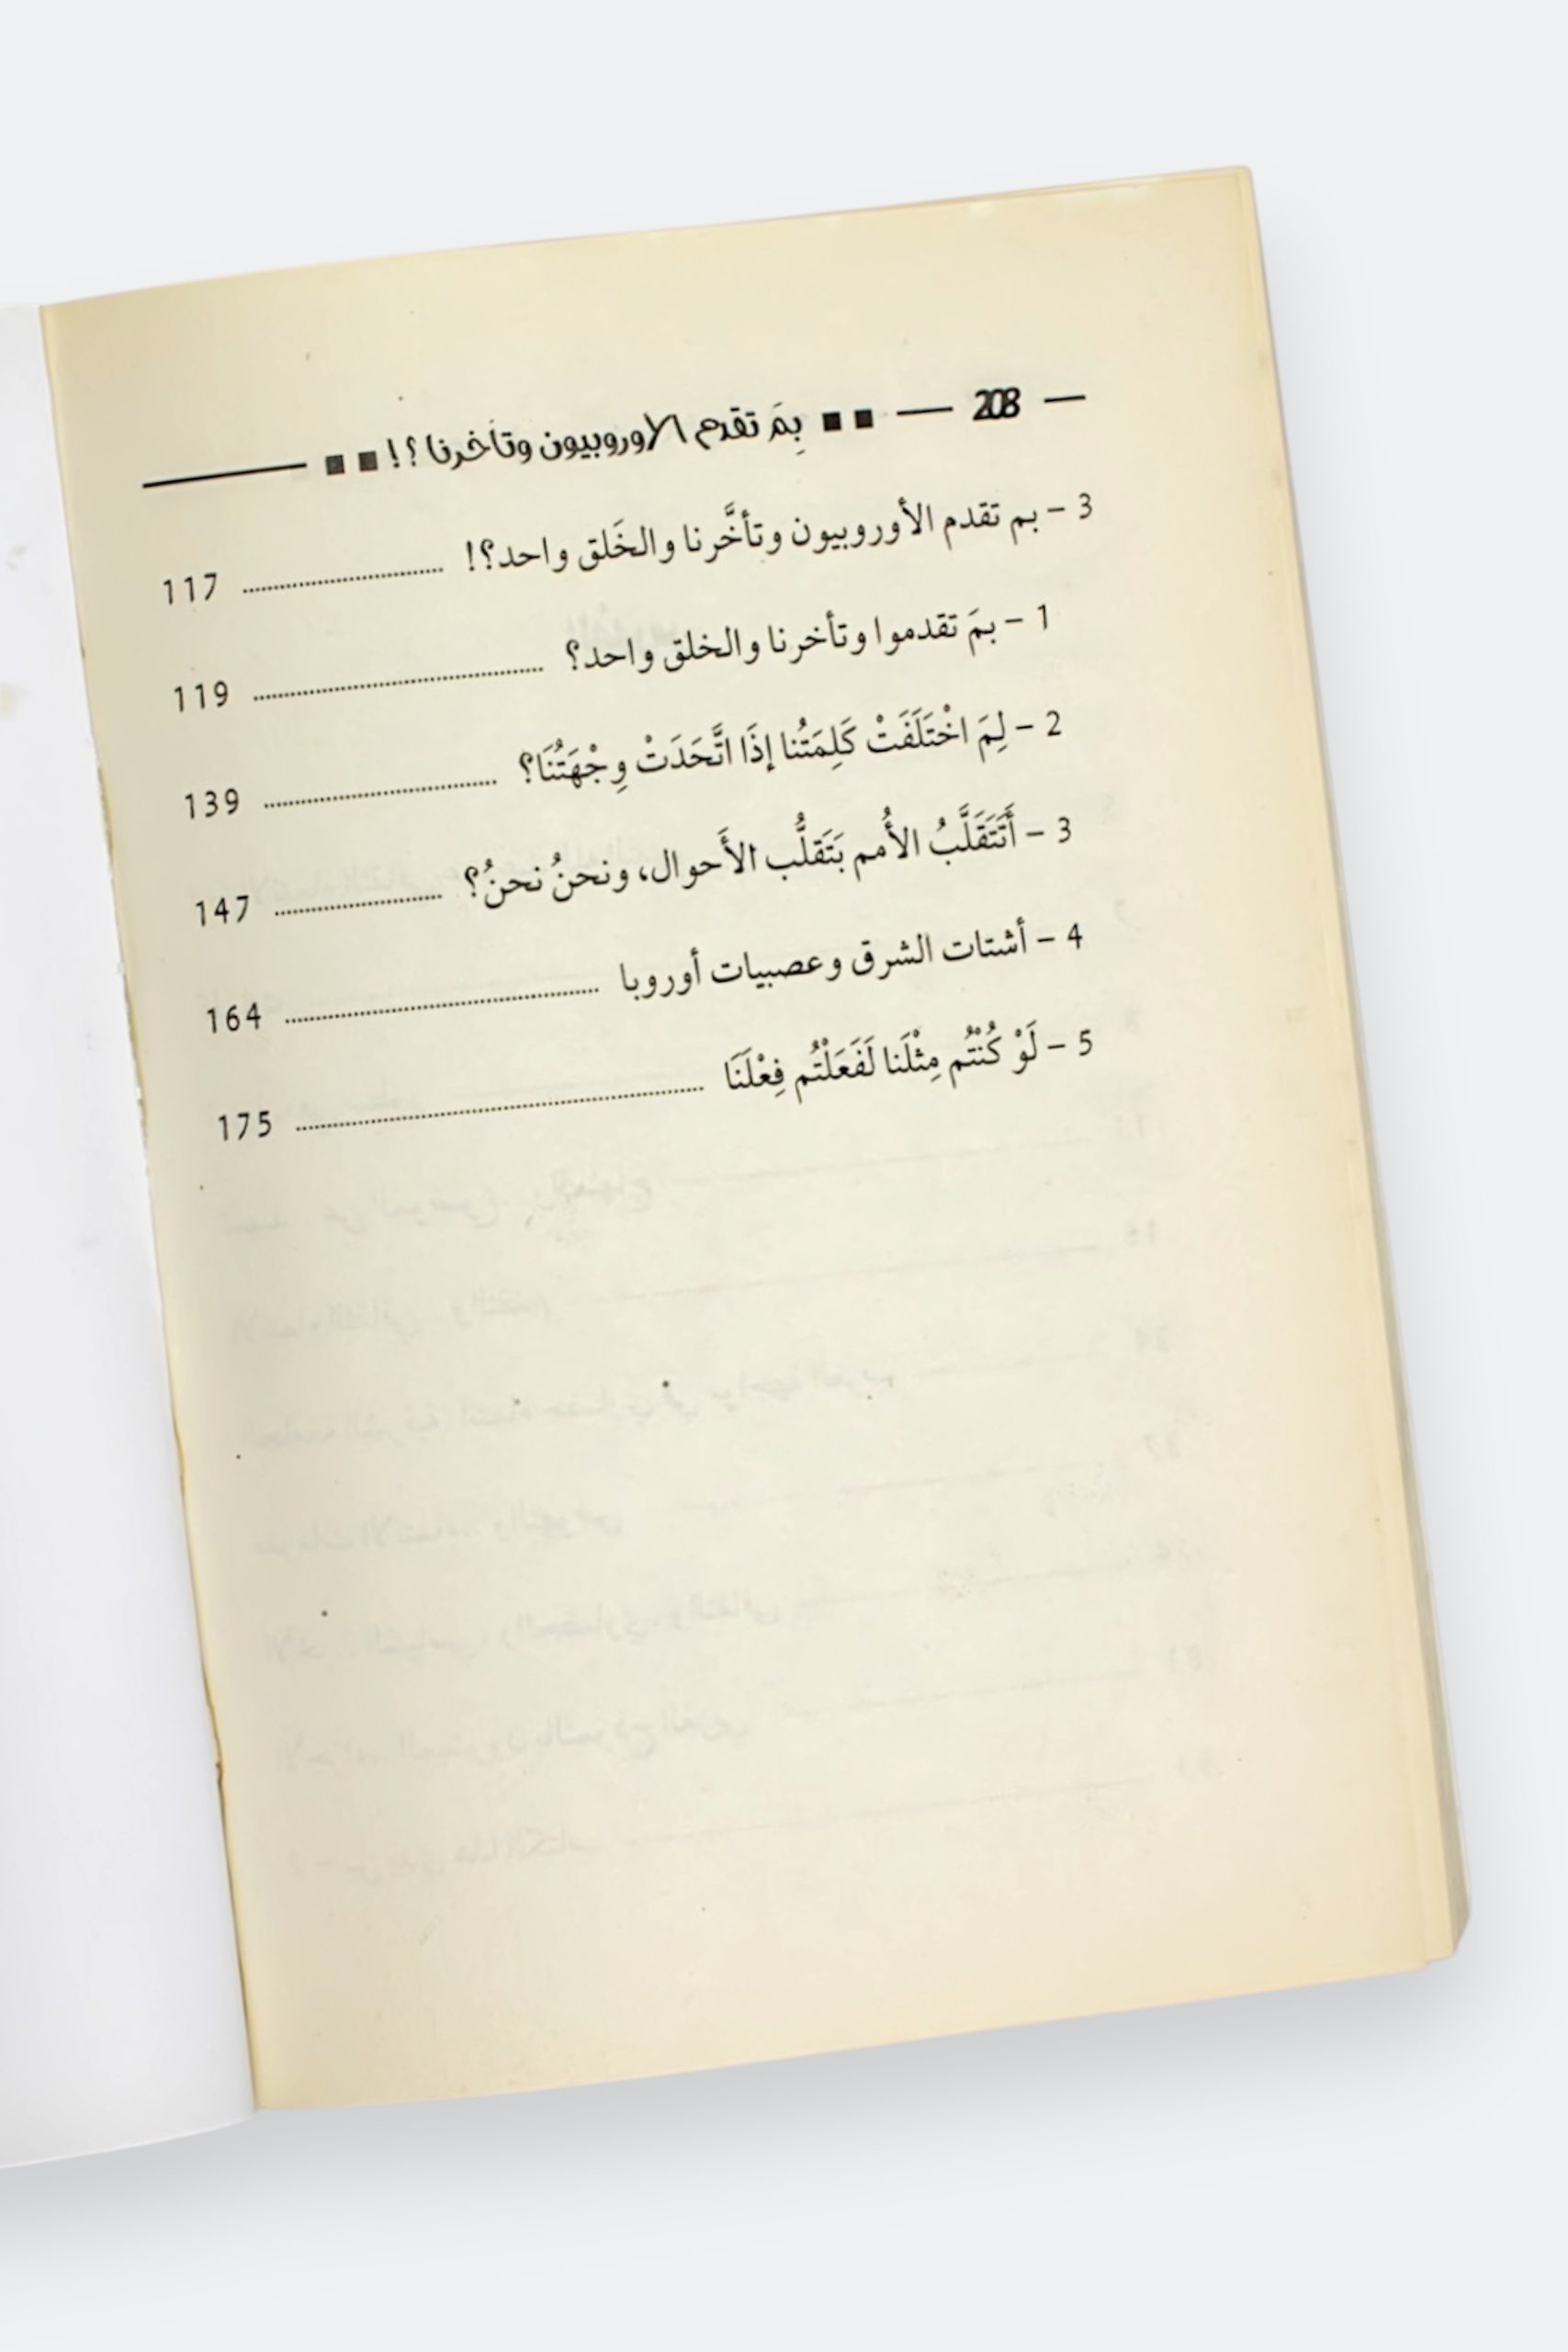 — 208 — ■ ■ بِمَ تقدم الاوروبيون وتأخرنا ؟ ! ■ ■
3 – بم تقدم الأوروبيون وتأخَّرنا والخَلق واحد؟! ........ 117
1 – بمَ تقدموا وتأخرنا والخلق واحد؟ ........ 119
2 – لِمَ اخْتَلَفَتْ كَلِمَتُنا إذَا اتَّحَدَتْ وِجْهَتُنَا؟ ........ 139
3 – أَتَتَقَلَّبُ الأُمم بَتَقلُّب الأَحوال، ونحنُ نحنُ؟ ........ 147
4 – أشتات الشرق وعصبيات أوروبا ........ 164
5 – لَوْ كُنْتُم مِثْلَنا لَفَعَلْتُم فِعْلَنَا ........ 175